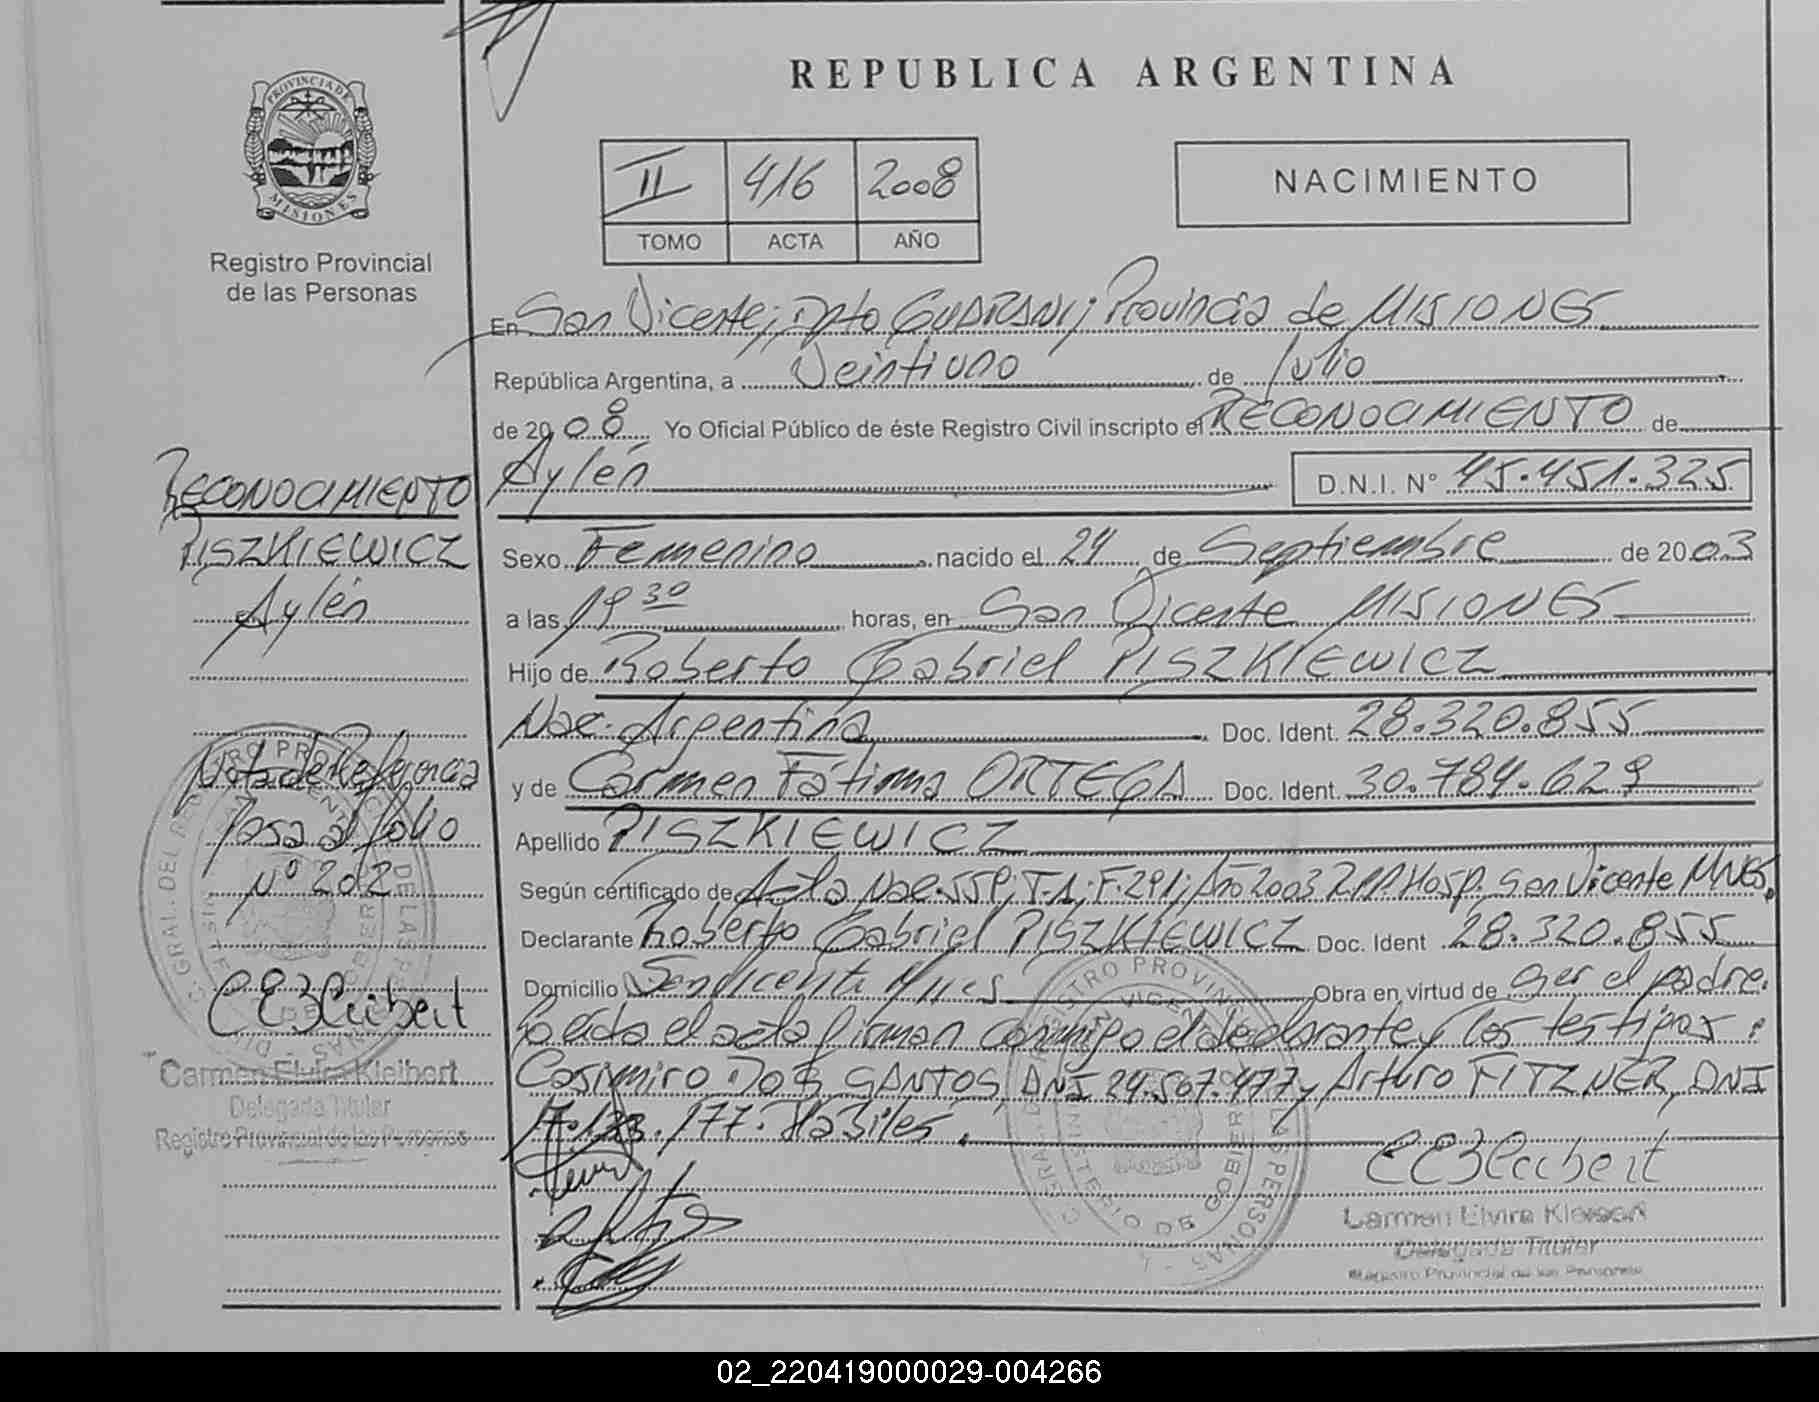 REPUBLICA ARGENTINA
PROVINCIA DE
MISIONES
Registro Provincial
de las Personas
II 416 2008
TOMO ACTA AÑO
NACIMIENTO
En San Vicente; Dpto GUARANI; Provincia de MISIONES
República Argentina, a Veintiuno de Julio
de 2008 Yo Oficial Público de éste Registro Civil inscripto el RECONOCIMIENTO de
Aylén D.N.I. N° 45.451.325
Sexo Femenino nacido el 24 de Septiembre de 2003
a las 19 30 horas, en San Vicente MISIONES
Hijo de Roberto Gabriel PISZKIEWICZ
Nac. Argentina Doc. Ident. 28.320.855
y de Carmen Fátima ORTEGA Doc. Ident. 30.784.629
Apellido PISZKIEWICZ
Según certificado de Acta Nac. 559; T-1; F-291; Año 2003 R.P.P. Hosp. San Vicente MNES.
Declarante Roberto Gabriel PISZKIEWICZ Doc. Ident 28.320.855
Domicilio San Vicente Mnes Obra en virtud de ser el padre.
Leída el acta firman conmigo el declarante y los testigos:
Casimiro DOS SANTOS, DNI 24.567.477 y Arturo FITZNER, DNI
177. Habiles.
RECONOCIMIENTO
PISZKIEWICZ
Aylén
Nota de Referencia
Pasa al folio
N° 202
Carmen Elvira Kleibert
Delegada Titular
Registro Provincial de las Personas
Carmen Elvira Kleibert
Delegada Titular
Registro Provincial de las Personas
02_220419000029-004266